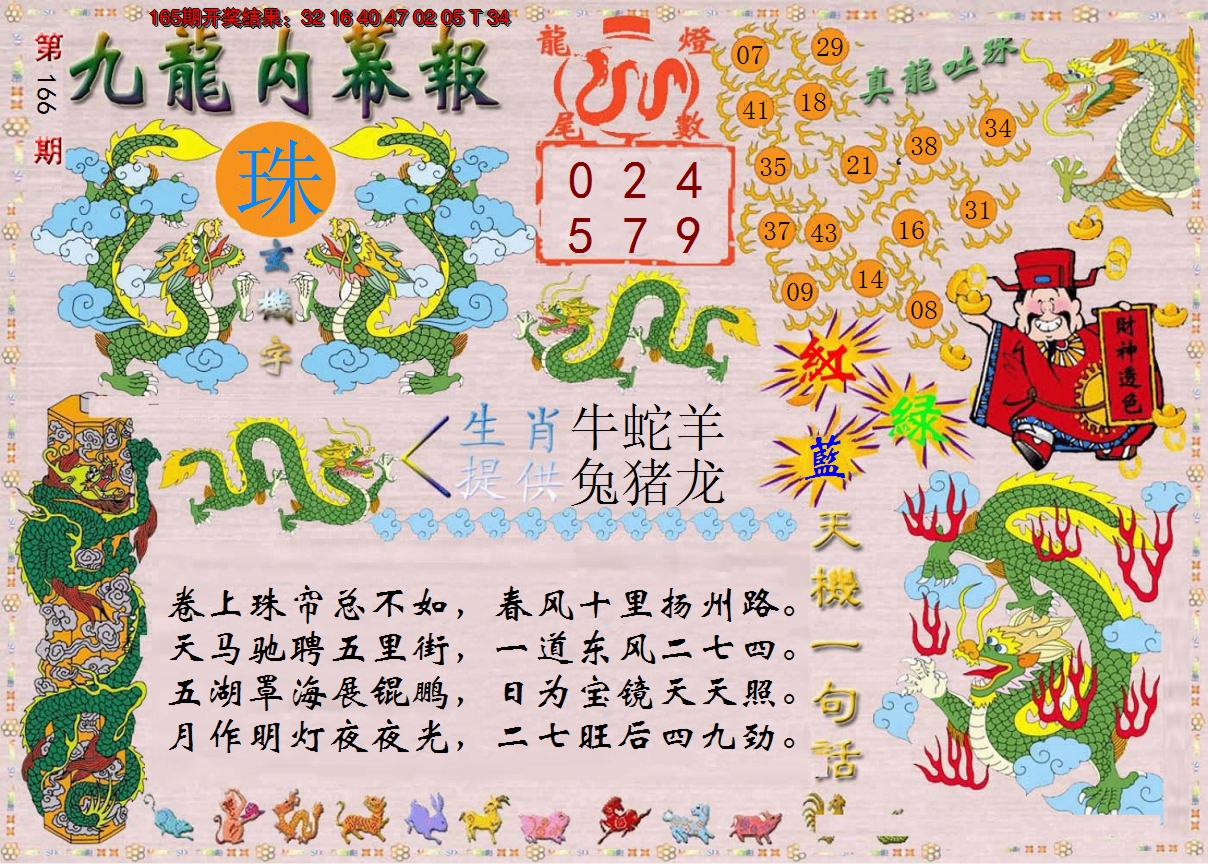 165期开奖结果：32 16 40 47 02 05 T 34
第166期
九龍内幕報
珠
玄機字
龍燈尾數
0 2 4
5 7 9
真龍吐珠
07 29
41 18
38 34
35 21
31
37 43 16
09 14
08
財神透色
紅
綠
藍
生肖 牛蛇羊
提供 兔猪龙
天機一句話
卷上珠帘总不如，春风十里扬州路。
天马驰聘五里街，一道东风二七四。
五湖罩海展锟鹏，日为宝镜天天照。
月作明灯夜夜光，二七旺后四九劲。